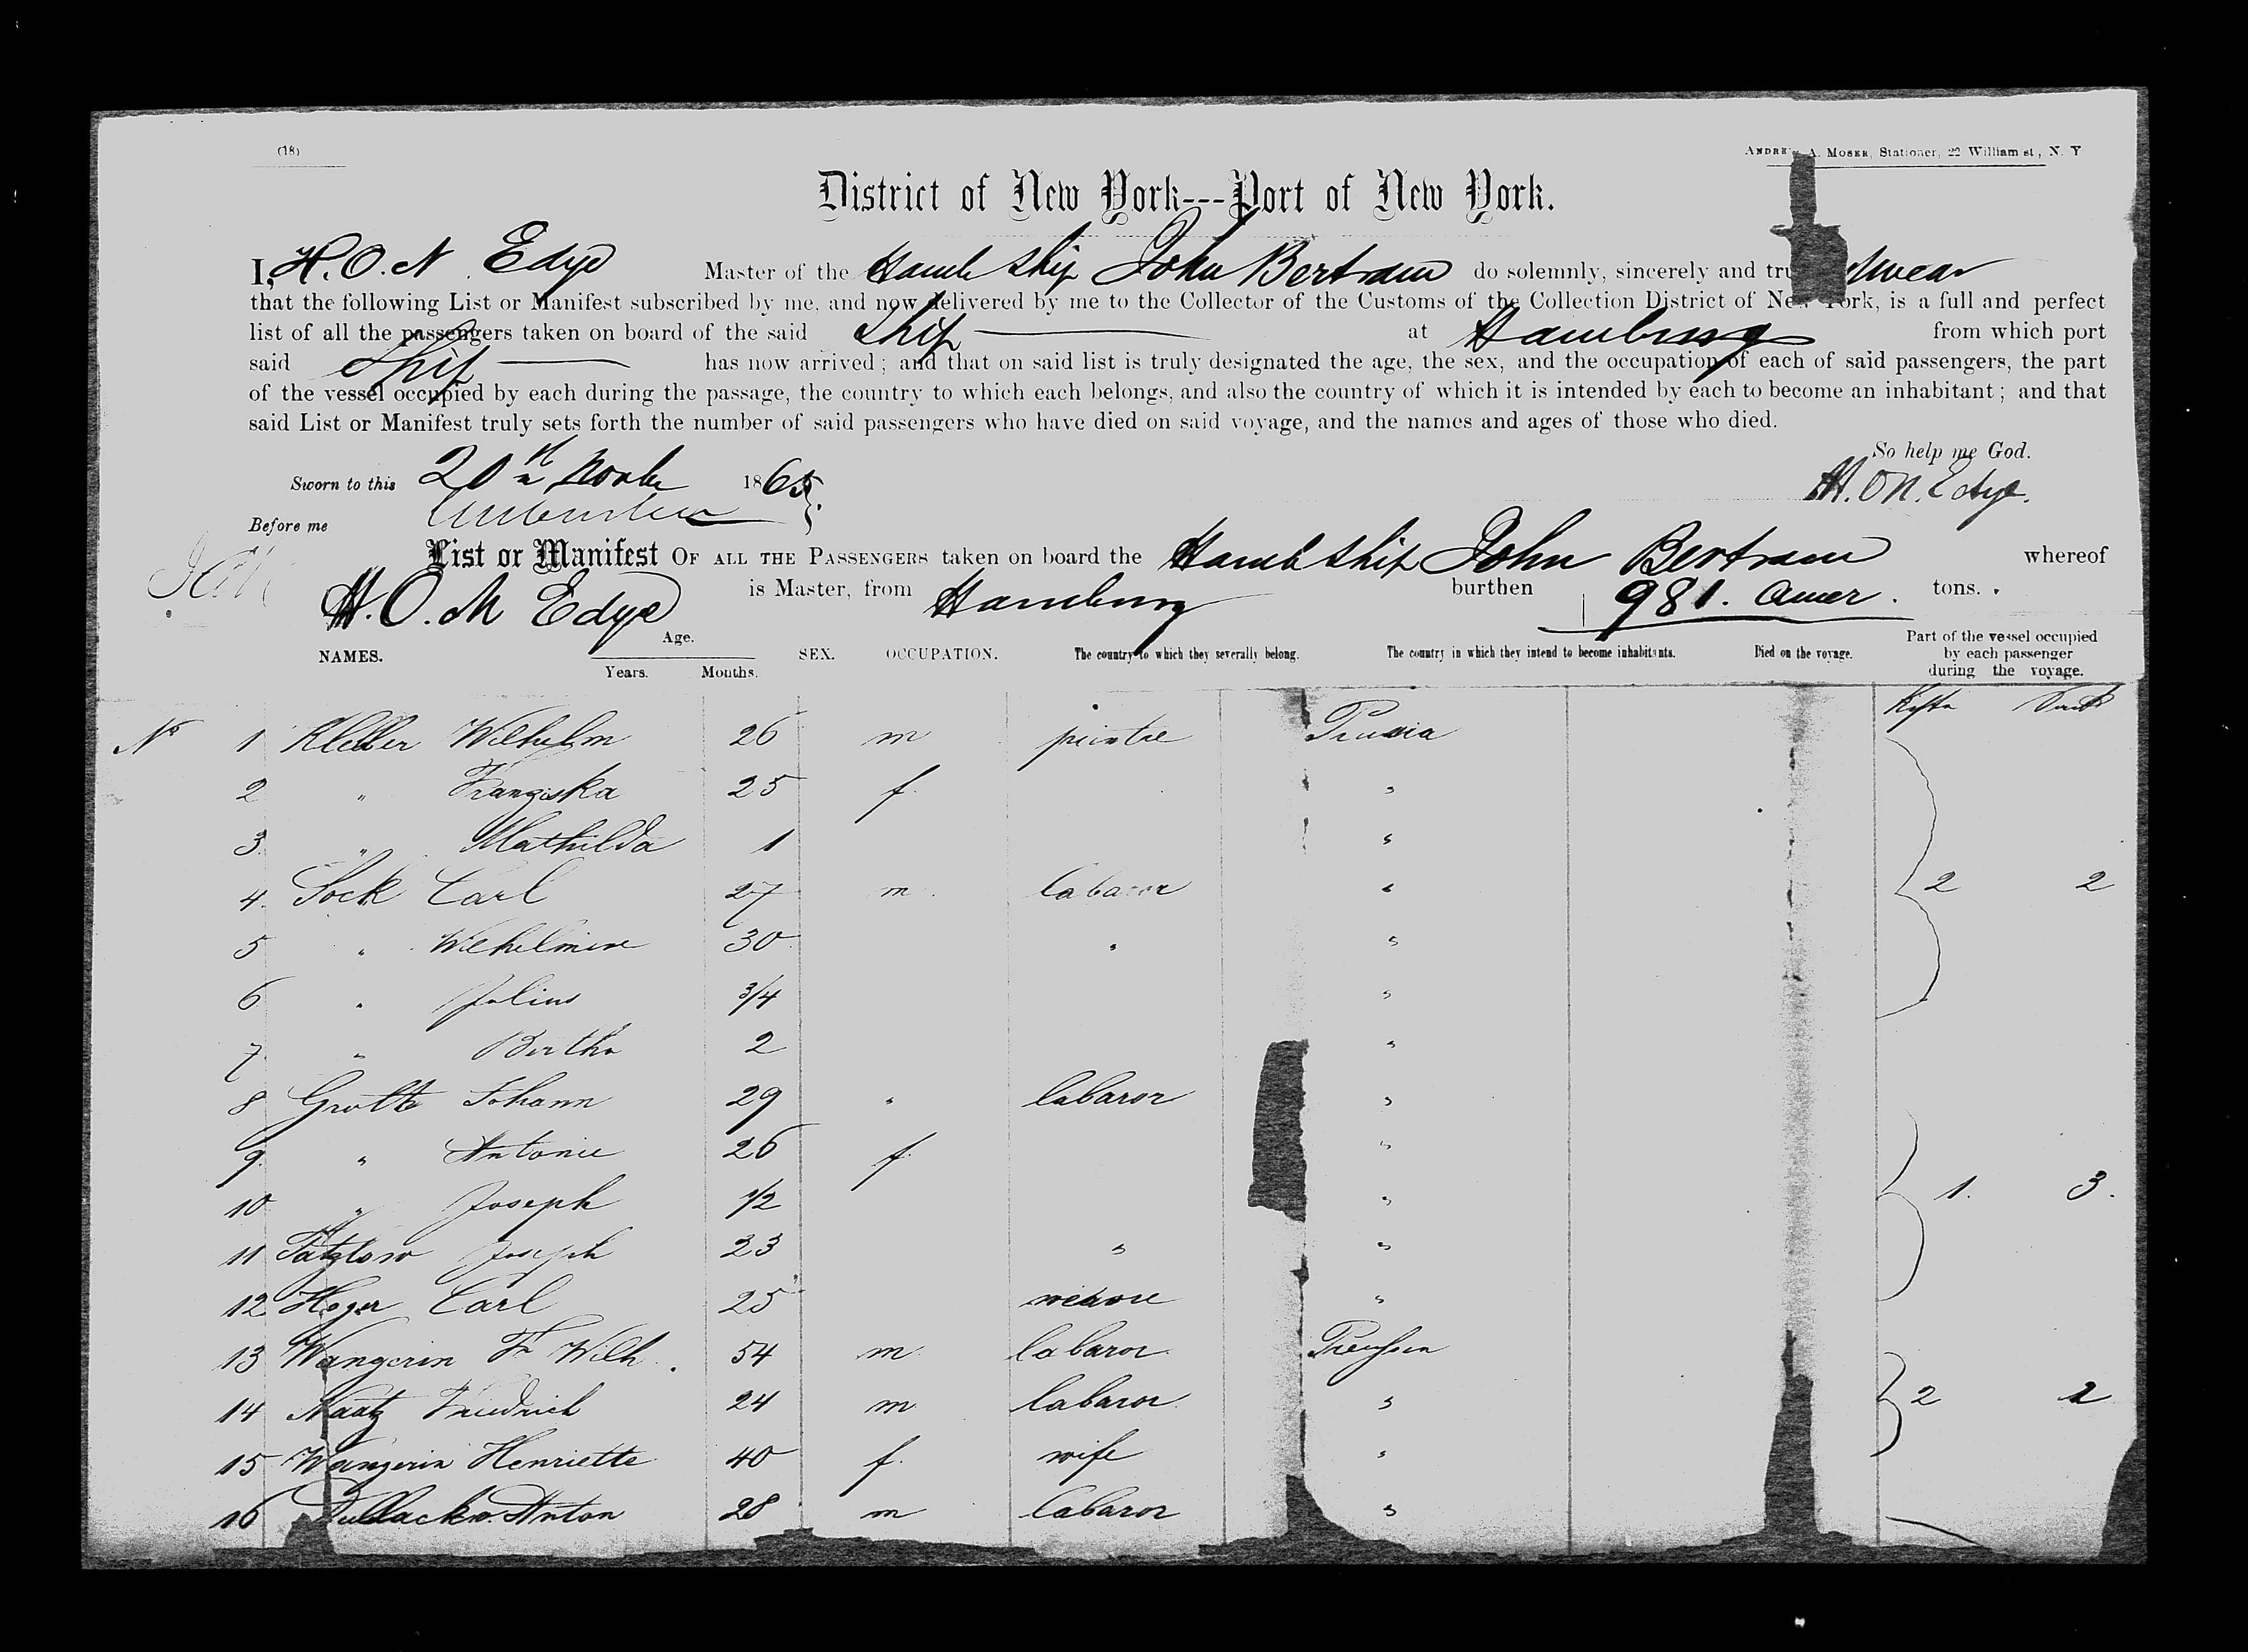 (18)
ANDREW A. MOSER, Stationer, 22 William st., N. Y
District of New York---Port of New York.
I, H. O. N Edye Master of the Hamb Ship John Bertram do solemnly, sincerely and tru swear
that the following List or Manifest subscribed by me, and now delivered by me to the Collector of the Customs of the Collection District of New York, is a full and perfect
list of all the passengers taken on board of the said Ship at Hamburg from which port
said Ship has now arrived; and that on said list is truly designated the age, the sex, and the occupation of each of said passengers, the part
of the vessel occupied by each during the passage, the country to which each belongs, and also the country of which it is intended by each to become an inhabitant; and that
said List or Manifest truly sets forth the number of said passengers who have died on said voyage, and the names and ages of those who died.
So help me God.
Sworn to this 20th Novbr 1865 H. O N. Edye.
Before me
List or Manifest OF ALL THE PASSENGERS taken on board the Hamb Ship John Bertram whereof
H. O. N Edye is Master, from Hamburg burthen 981. Amer. tons.
NAMES. Age. Years. Months. SEX. OCCUPATION. The country to which they severally belong. The country in which they intend to become inhabitants. Died on the voyage. Part of the vessel occupied by each passenger during the voyage.
No 1 Wilhelm 26 m Prussia
2 " Franziska 25 f. "
3. " Mathilda 1 "
4. Carl 27 m. labaror " 2 2
5 " Wilhelmine 30 " "
6 " Julius 3/4 "
7. " Bertha 2 "
8 Grotte Johann 29 " labaror "
9. " Antonie 26 f. "
10 " Joseph 1/2 " 1. 3.
11 Joseph 23 " "
12 Hoger Carl 25 "
13 Wangerin Fr Wilh. 54 m labaror Preussen
14 Naatz Friedrich 24 m labaror " 2
15 Wangerin Henriette 40 f. wife "
16 Anton 28 m labaror "